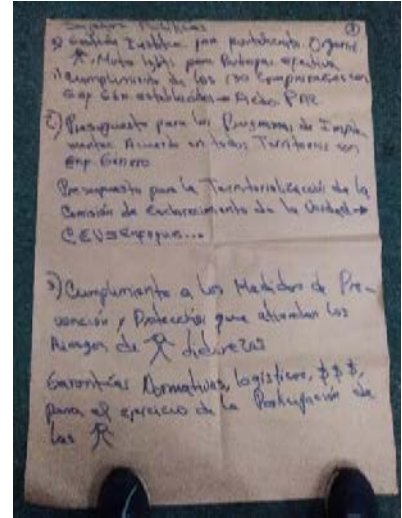 Políticas
para fortalecimiento Organi.
para Participar efectiva
1) Cumplimiento de los 130 compromisos con
Enf. Gén. establecidos Acdo PAZ
2) Presupuesto para los Programas de Imple-
mentar Acuerdo en todos Territorios con
enf. Género
Presupuesto para la Territorialización de la
Comisión de Esclarecimiento de la Verdad
CEV Enfoque...
3) Cumplimiento a las Medidas de Pre-
vención y Protección que atiendan los
Riesgos de lideresas
Garantías Normativas, logísticas, $$$,
para el ejercicio de la Participación de
las